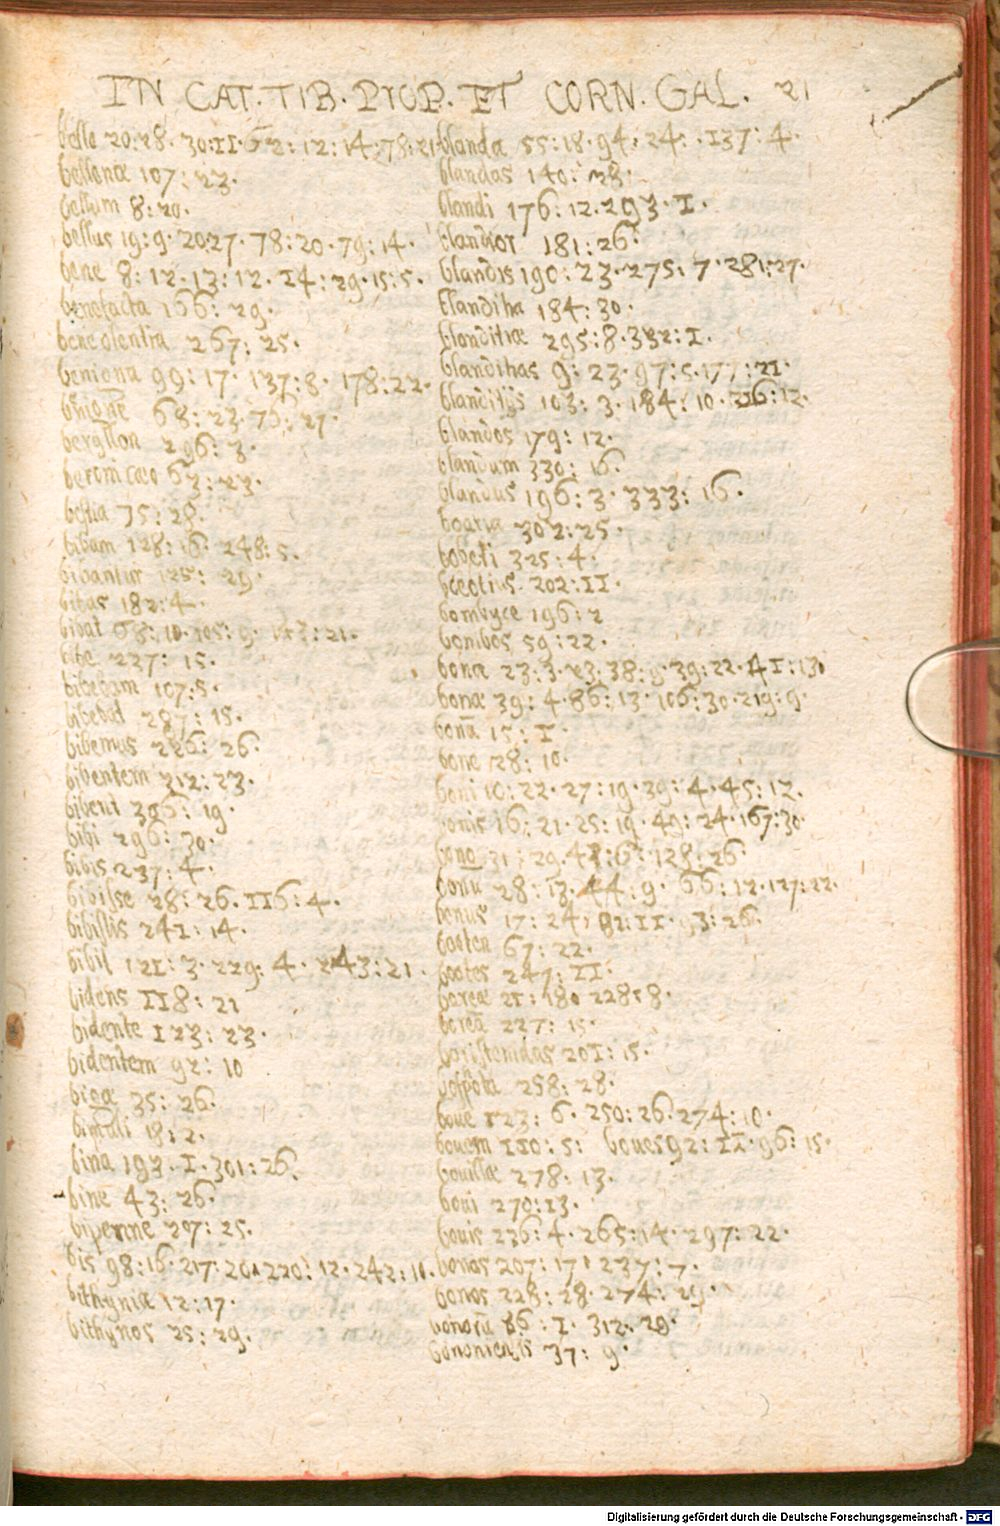 IN CAT. TIB. PROP. ET CORN. GAL. 21
belle 20:28. 30:11. 62:12:14:78:21
bellonæ 107:23.
bellum 8:20.
bellus 19:9. 20:27. 78:20. 79:14.
bene 8:12. 13:12. 14:29. 15:5.
benefacta 166:29.
benevolentia 267:25.
benigna 99:17. 137:8. 178:22.
benigne 68:23. 76:27
296:3.
63:23.
bestia 75:28.
bibam 128:16. 248:5.
bibantur 125:29.
bibas 182:4.
bibat 68:10. 105:9. 21.
bibe 227:15.
bibebam 107:5.
bibebat 287:15.
bibemus 226:26.
bibentem 212:23.
bibent 326:19.
bibi 296:30.
bibis 237:4.
bibisse 28:26. 116:4.
bibistis 241:14.
bibit 121:3. 229:4. 243:21.
bidens 118:21
bidente 123:23.
bidentem 92:10
bigæ 35:26.
bimuli 18:2.
bina 193.1. 301:26.
bine 43:26.
bipenne 207:25.
bis 98:16. 217:20. 220:12. 242:10.
bithyniæ 12:17.
bithynos 25:29.
blanda 55:18. 94:24. 137:4.
blandas 140:28.
blandi 176:12. 293.1.
blandior 181:26.
blandis 190:23. 275:7. 281:27.
blanditia 184:30.
blanditiæ 295:8. 332:1.
blanditias 9:23. 97:5. 177:21.
blanditijs 103:3. 184:10. 216:12.
blandos 179:12.
blandum 330:16.
blandus 196:3. 333:16.
302:25.
325:4.
boeotius. 202:11.
bombyce 196:2
bombos 59:22.
bonæ 23:3. 23. 38:9. 39:22. 41:13
bonæ 39:4. 86:13. 106:30. 219:9.
bonā 15:1.
bone 28:10.
boni 10:22. 27:19. 39:4. 45:12.
bonis 16:21. 25:19. 49:24. 167:30.
bono 31:29. 42:6. 128:26.
bonū 28:13. 44:9. 66:12. 127:22.
bonus 17:24. 82:11. 93:26.
booten 67:22.
bootes 247:11.
boreæ 21:18. 228:8.
227:15.
boristenidas 201:15.
258:28.
boue 123:6. 250:26. 274:10.
bouem 110:5: boues 92:11. 96:15.
bouillæ 278:13.
boui 270:13.
bouis 226:4. 265:14. 297:22.
bonas 207:17. 237:7.
bonos 228:28. 274:29.
bonorū 86:1. 312:29.
37:9.